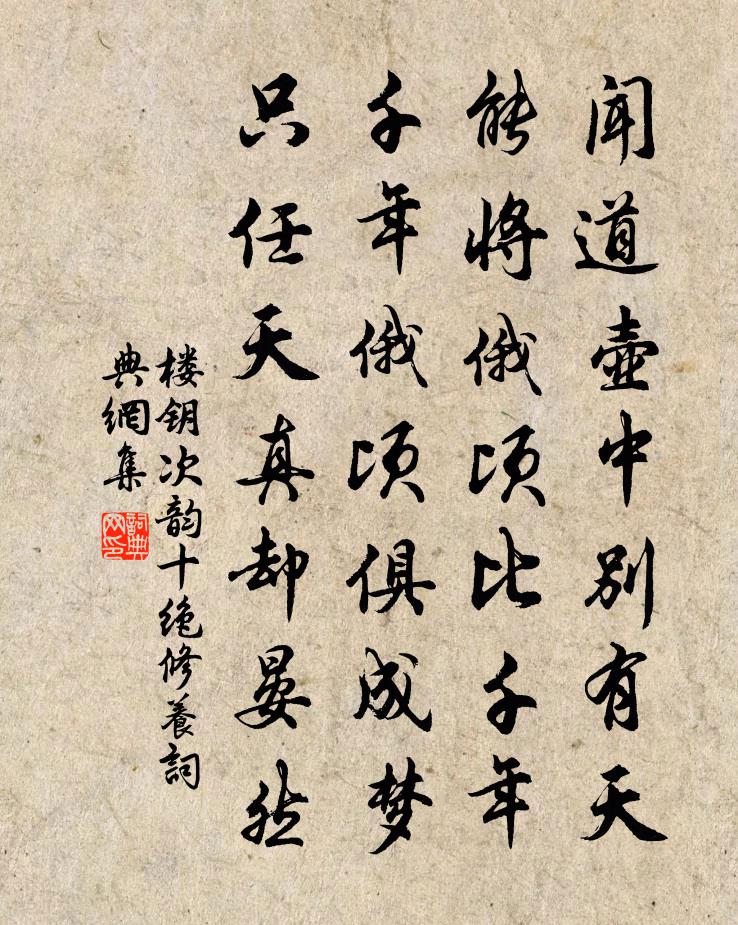 闻道壶中别有天
能将俄顷比千年
千年俄顷俱成梦
只任天真却晏然
楼钥次韵十绝修养詞
典網集
詞典
网印